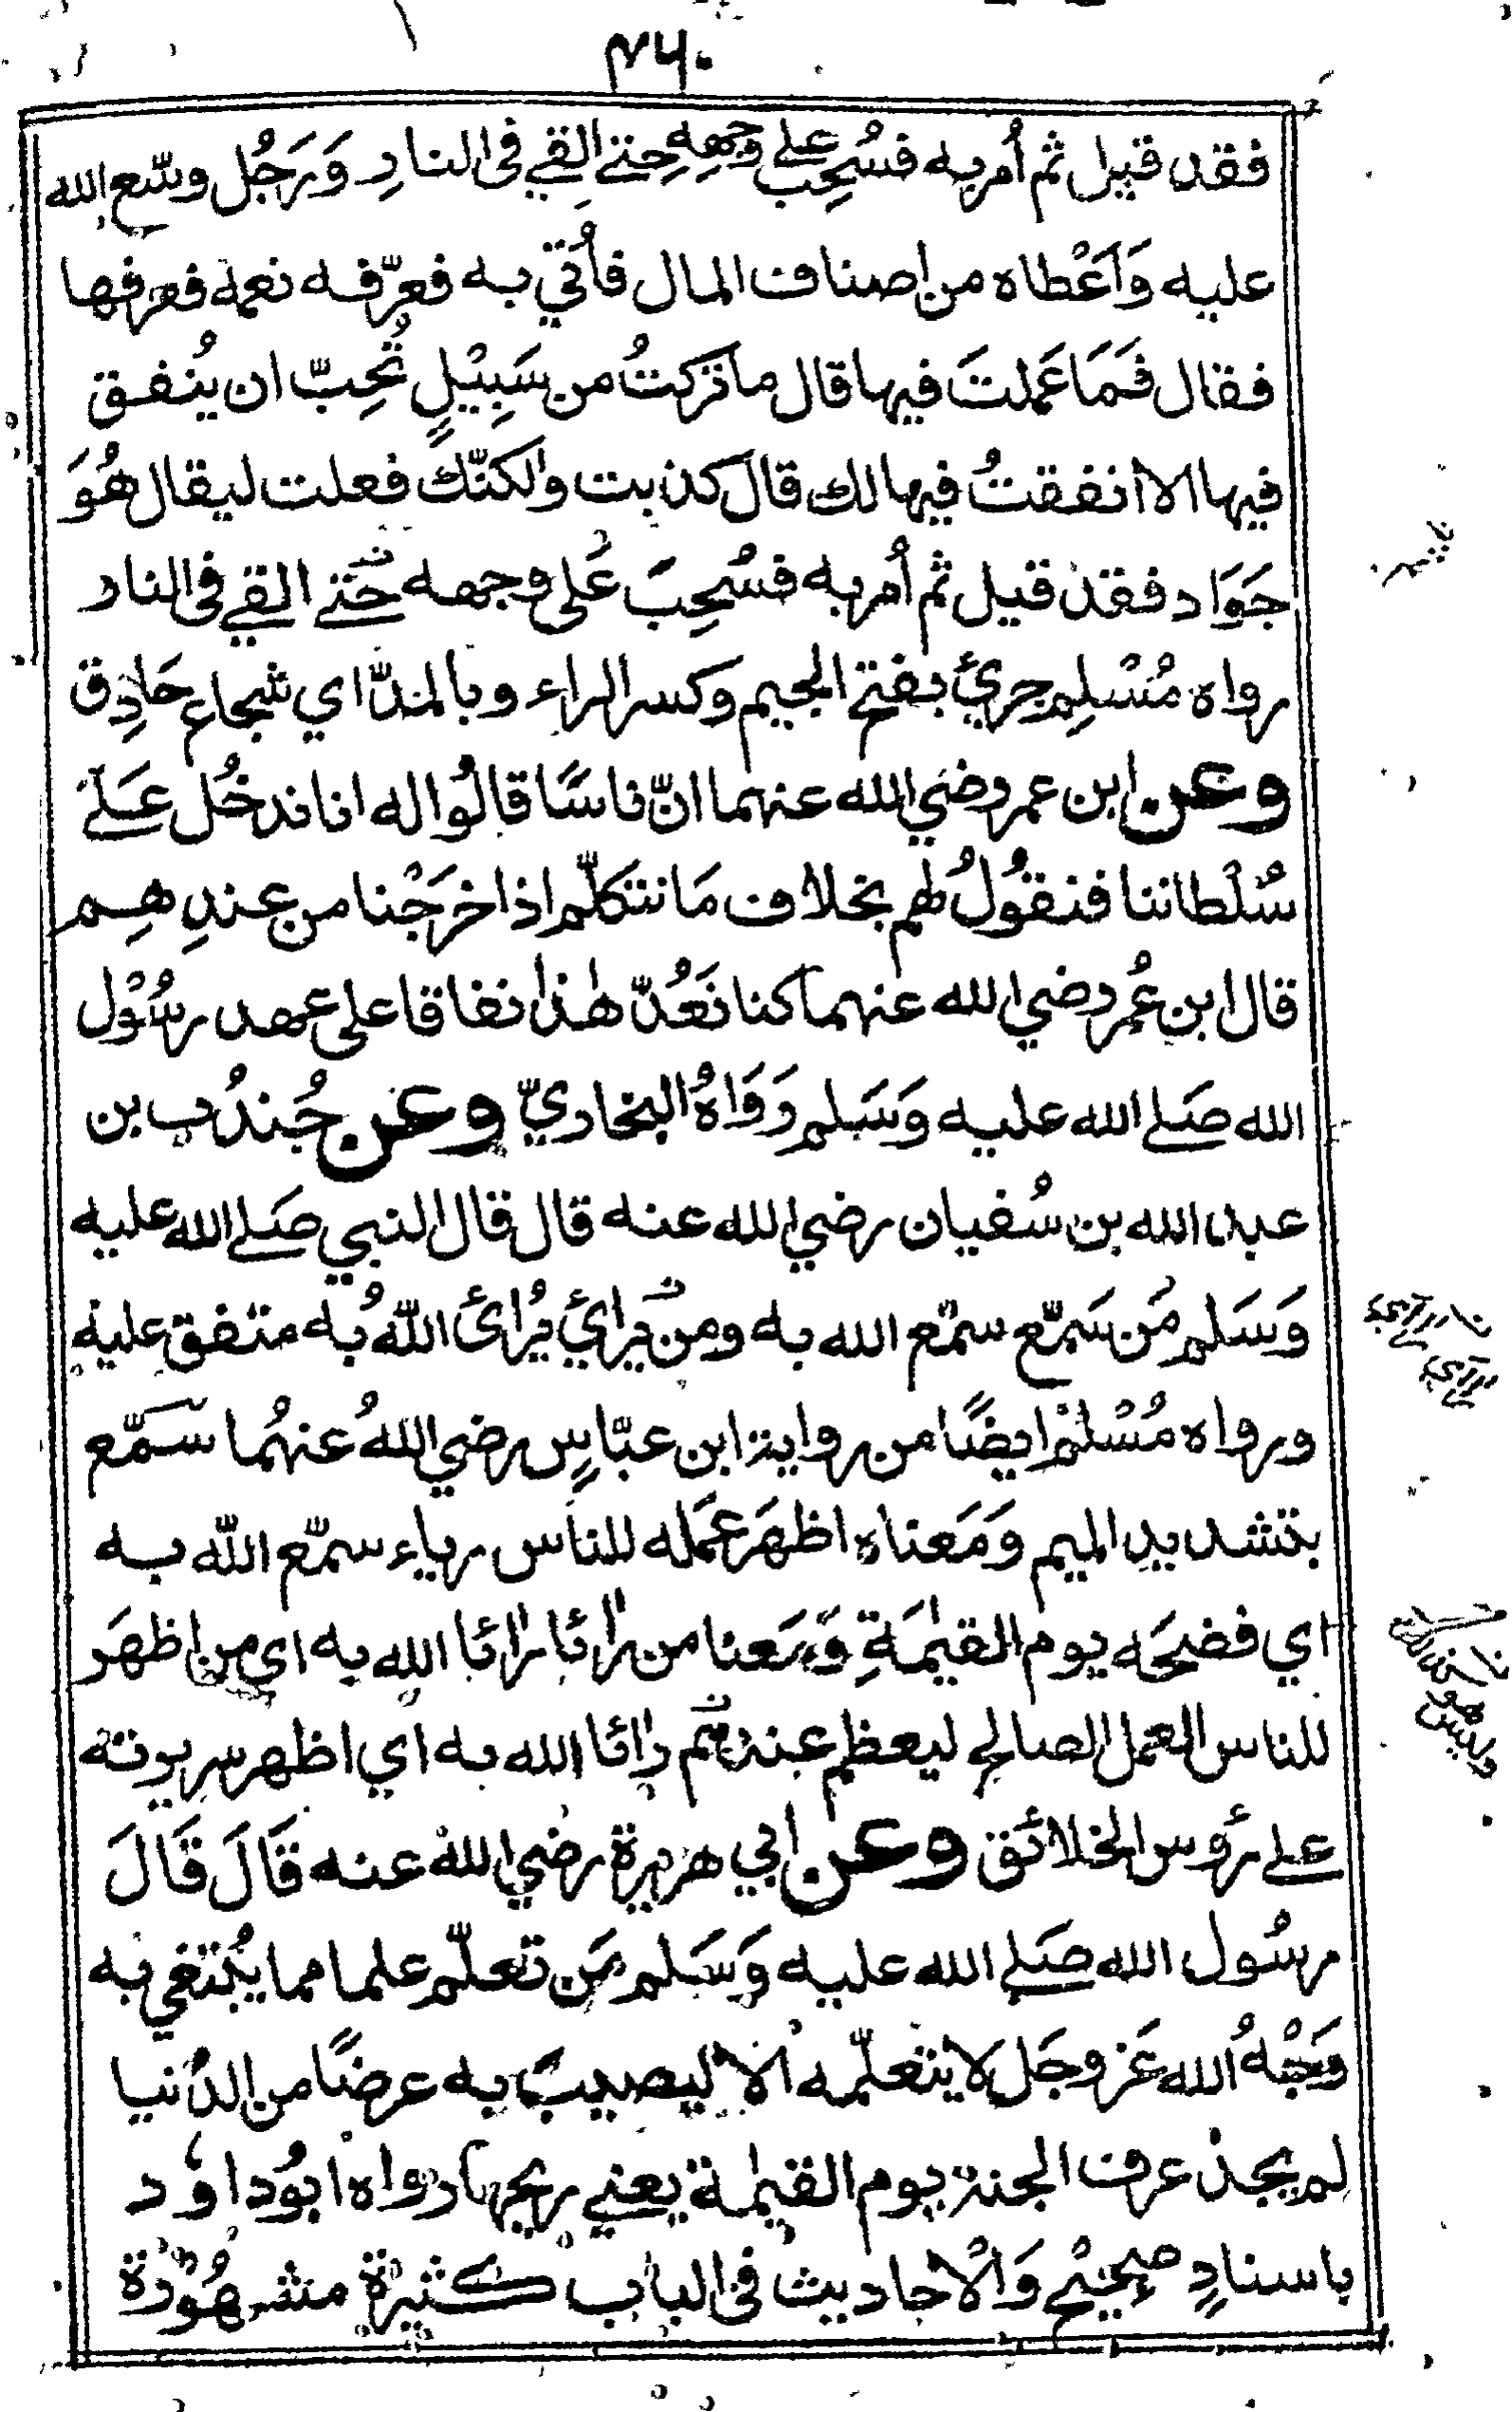 ٣٦٠
فقد قيل ثم أُمر به فسُحِب على وجهِهِ حتى القي في النارِ وَرَجُل وسّع الله
عليه وَاَعْطاه من اصناف المال فأُتي به فعرّفه نعمه فعرفها
فقال فَمَا عَملتَ فيها قال ما تركتُ من سَبِيْلٍ تُحِبّ ان يُنفق
فيها الا انفقتُ فيها لك قال كذبت ولكنّك فعلت ليقال هُوَ
جَوَاد فقد قيل ثم أُمر به فسُحِبَ عَلى وجهه حَتى القي فى النار
رواه مُسْلِم جرئ بفتح الجيم وكسر الراء وبالمدّ اي شجاع حَاذِق
وعن ابن عمر رضي الله عنهما انّ ناسًا قالُوا له انا ندخُل عَلى
سُلْطاننا فنقوُلُ لهم بخلاف مَا نتكلّم اذا خرَجْنا من عندِهِم
قال ابن عُمر رضي الله عنهما كنا نَعُدّ هٰذا نفاقا على عهد رسُوْل
الله صَلى الله عليه وَسَلم رَوَاهُ البخاريّ وعن جُندُب بن
عبد الله بن سُفيان رضي الله عنه قال قال النبي صَلى الله عليه
وَسَلم مَن سَمّع سمّع الله به ومن يُرائي يُرائ اللّهُ به متفق عليه
ورواه مُسْلم ايضًا من رواية ابن عبّاسٍ رضي اللهُ عنهُما سَمّع
بتشديد الميم وَمَعناه اظهَر عَمَله للناس رياء سمّع اللّه به
اي فضحَه يوم القيٰمَةِ وَمَعنا من رائا رائا الله به اي من اظهَر
للناس العمل الصالح ليعظم عندهم رائا الله به اي اظهر سريرته
على رؤس الخلائق وعن ابي هريرة رضي الله عنه قَالَ قَالَ
رسُول الله صَلى الله عليه وَسَلم مَن تعلّم علما مما يُبتغي به
وَجْهُ الله عَز وجَل لا يتعلّمه الا ليصيبَ به عرضًا من الدُنيا
لم يجد عرف الجنة يوم القيٰمة يعني ريحها رواه ابُو داوٗد
باسنادٍ صحيْح وَالْاحاديث فى الباب كثيرة مشهُوْرَة